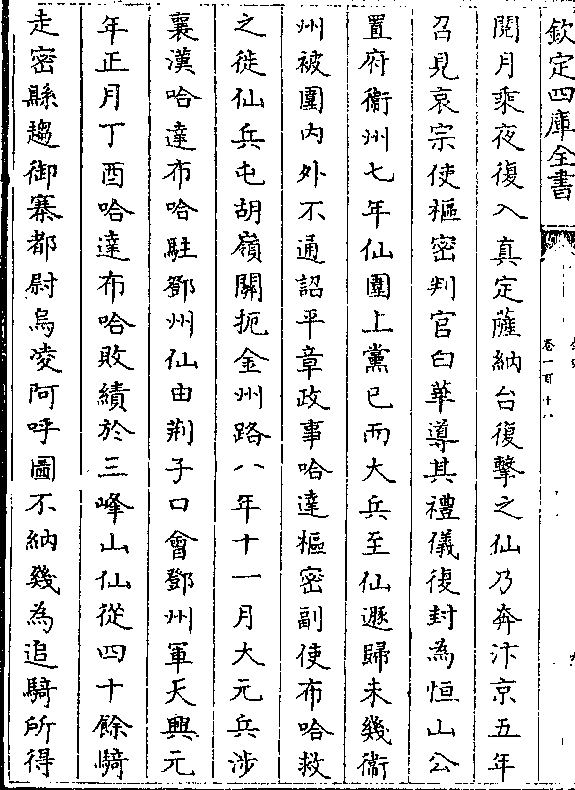 欽定四庫全書
卷一百十八
閱月乘夜復入真定薩納台復擊之仙乃奔汴京五年
召見哀宗使樞密判官白華導其禮儀復封為恒山公
置府衛州七年仙圍上黨已而大兵至仙遯歸未幾衛
州被圍内外不通詔平章政事哈達樞密副使布哈救
之徙仙兵屯胡嶺關扼金州路八年十一月大元兵涉
襄漢哈達布哈駐鄧州仙由荆子口會鄧州軍天興元
年正月丁酉哈達布哈敗績於三峰山仙從四十餘騎
走密縣趨御寨都尉烏凌阿呼圖不納幾為追騎所得